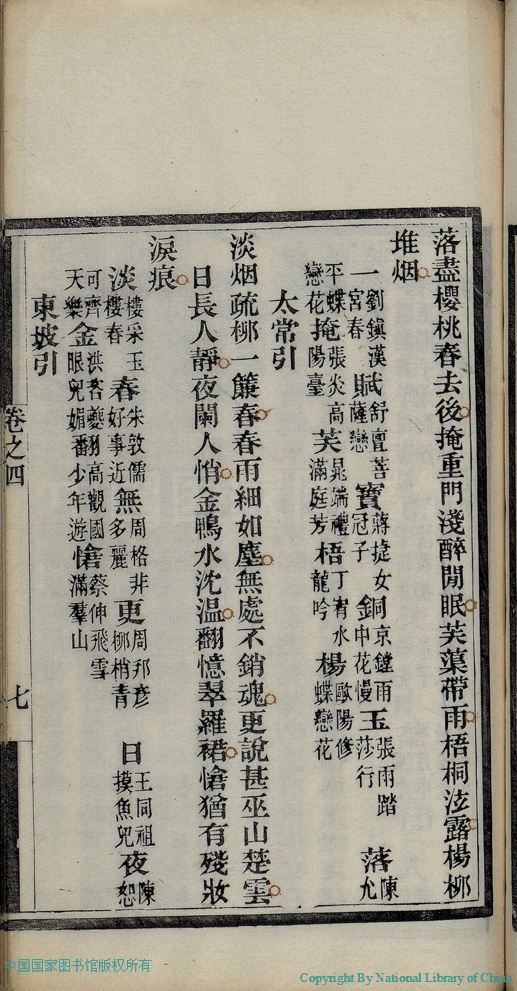 落盡櫻桃春去後掩重門淺醉閒眠芙蕖帶雨梧桐泫露楊柳
堆烟
一劉鎮漢宮春賦舒亶菩薩戀寶蔣捷女冠子劍京鏜雨中花慢玉張雨踏莎行落陳允
平蝶戀花掩張炎高陽臺芙晁端禮滿庭芳梧丁宥水龍吟楊歐陽修蝶戀花
太常引
淡烟疏柳一簾春春雨細如塵無處不銷魂更說甚巫山楚雲
日長人靜夜闌人悄金鴨水沈温翻憶翠羅裙愴猶有殘妝
淚痕
淡樓采玉樓春春朱敦儒好事近無周格非多麗更周邦彥柳梢青日王同祖摸魚兒夜陳恕
可齊天樂金洪咨夔眼兒媚翻高觀國少年遊愴蔡伸飛雪滿羣山
東坡引
卷之四
七
中国国家图书馆版权所有
Copyright By National Library of China